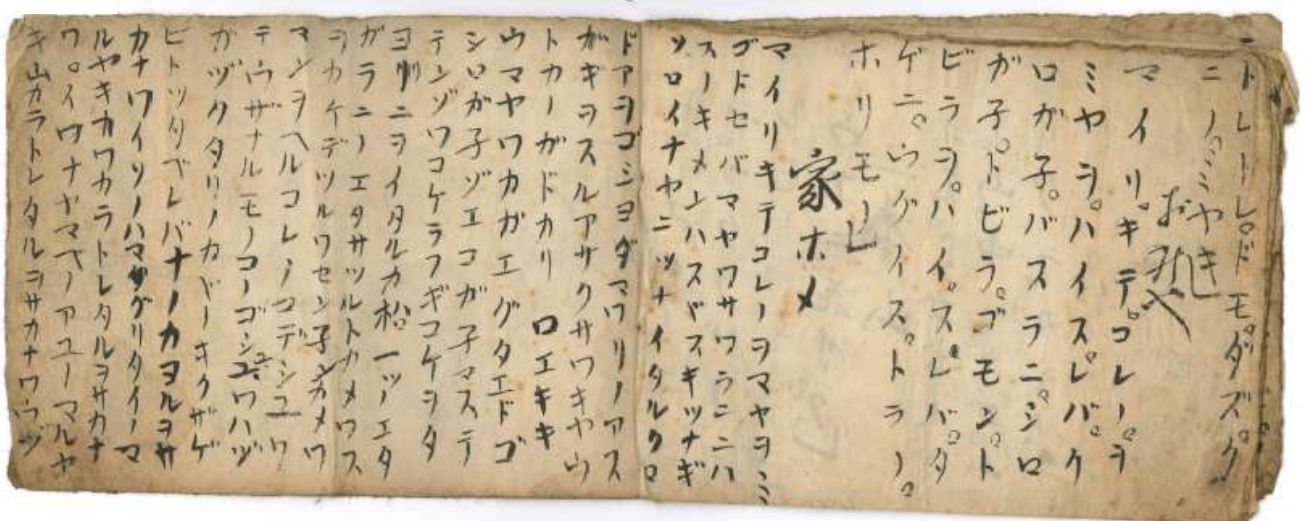 トレトレドモダズク
ニノミヤキ
マイリキテコレーラ
ミヤヲハイスレバク
ロガ子バスラニシロ
ガ子ドビラゴモント
ビラヲハイスレバダ
ゲニウグイストラノ
ホリモノ
家ホメ
マイリキテコレーヲマヤヲミ
ゴドセバマヤワサワラニニハ
スーキメンハスドスキツナギ
ソロイナヤニツナイタルクロ
ドアヲゴシヨダマワリノアス
ガキヲスルアザクサワキヤウ
トカーガドカリ ロエキキ
ウマヤワカガエグタエドゴ
シロガ子ゾエコガ子マステ
テンゾワコケラフギコケヲタ
ヨリニヲイタルカ松一ツノエタ
ガラニノエタサツルトカメワス
ヲカケデツルワセン子ンカメワ
マンヲヘルコレノコデシユワ
テウザナルモノコーゴシユワハヅ
ガヅクタリノカドーキクザゲ
ビトツタベレバナノカヨルヲサ
カナワイソノハマグリタイノマ
ルヤキカワカラトレタルヲサカナ
ワイワナヤマベノアユーマルヤ
キ山カラトレタルヲサカナワウヅ